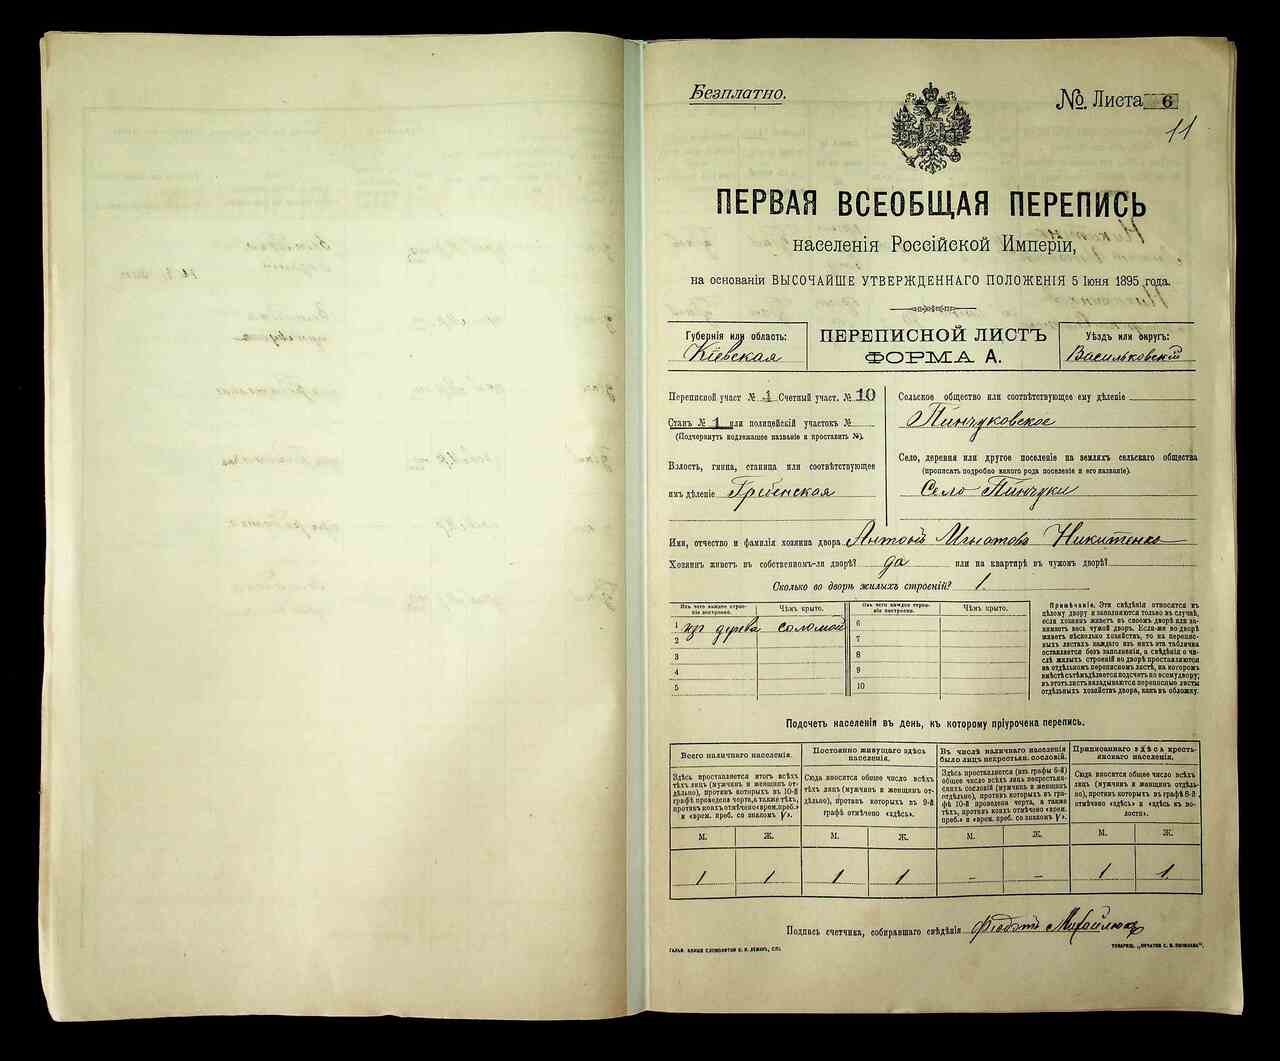 Безплатно.
№ Листа 6
11
ПЕРВАЯ ВСЕОБЩАЯ ПЕРЕПИСЬ
населенія Россійской Имперіи,
на основаніи ВЫСОЧАЙШЕ УТВЕРЖДЕННАГО ПОЛОЖЕНІЯ 5 Іюня 1895 года.
Губернія или область:
Кіевская
ПЕРЕПИСНОЙ ЛИСТЪ
ФОРМА А.
Уѣздъ или округъ:
Васильковскій
Переписной участ № 1 Счетный участ. № 10
Станъ № 1 или полицейскій участокъ №
(Подчеркнуть подлежащее названіе и проставить №).
Волость, гмина, станица или соотвѣтствующее
имъ дѣленіе Гребенская
Сельское общество или соотвѣтствующее ему дѣленіе
Пинчуковское
Село, деревня или другое поселеніе на земляхъ сельскаго общества
(прописать подробно какого рода поселеніе и его названіе).
Село Пинчуки
Имя, отчество и фамилія хозяина двора Антонъ Игнатовъ Никитенко
Хозяинъ живетъ въ собственномъ-ли дворѣ? да или на квартирѣ въ чужомъ дворѣ?
Сколько во дворѣ жилыхъ строеній? 1.
Изъ чего каждое строеніе построено.
Чѣмъ крыто.
Изъ чего каждое строеніе построено.
Чѣмъ крыто.
1 изъ дерева соломой 6
2 7
3 8
4 9
5 10
Примѣчаніе. Эти свѣдѣнія относятся къ
цѣлому двору и заполняются только въ случаѣ,
если хозяинъ живетъ въ своемъ дворѣ или занимаетъ
весь чужой дворъ. Если-же во дворѣ
живетъ нѣсколько хозяйствъ, то на переписныхъ
листахъ каждаго изъ нихъ эта табличка
оставляется безъ заполненія, а свѣдѣнія о числѣ
жилыхъ строеній во дворѣ проставляются
на отдѣльномъ переписномъ листѣ, на которомъ
вмѣстѣ съ тѣмъ дѣлается подсчетъ по всему двору;
въ этотъ листъ вкладываются переписные листы
отдѣльныхъ хозяйствъ двора, какъ въ обложку.
Подсчетъ населенія въ день, къ которому пріурочена перепись.
Всего наличнаго населенія.
Здѣсь проставляется итогъ всѣхъ
тѣхъ лицъ (мужчинъ и женщинъ отдѣльно),
противъ которыхъ въ 10-й
графѣ проведена черта, а также тѣхъ,
противъ коихъ отмѣчено «врем. преб.»
и «врем. преб. со знакомъ V».
Постоянно живущаго здѣсь
населенія.
Сюда вносится общее число всѣхъ
тѣхъ лицъ (мужчинъ и женщинъ отдѣльно),
противъ которыхъ въ 9-й
графѣ отмѣчено «здѣсь».
Въ числѣ наличнаго населенія
было лицъ некрестьян. сословій.
Здѣсь проставляется (изъ графы 6-й)
общее число всѣхъ лицъ некрестьянскихъ
сословій (мужчинъ и женщинъ
отдѣльно), противъ которыхъ въ графѣ
10-й проведена черта, а также
тѣхъ, противъ коихъ отмѣчено «врем.
преб.» и «врем. преб. со знакомъ V».
Приписаннаго здѣсь крестьянскаго
населенія.
Сюда вносится общее число всѣхъ
лицъ (мужчинъ и женщинъ отдѣльно),
противъ которыхъ въ графѣ 8-й
отмѣчено «здѣсь» и «здѣсь къ волости».
М. Ж. М. Ж. М. Ж. М. Ж.
1 1 1 1 – – 1 1
Подпись счетчика, собиравшаго свѣдѣнія Федотъ Михайлюкъ